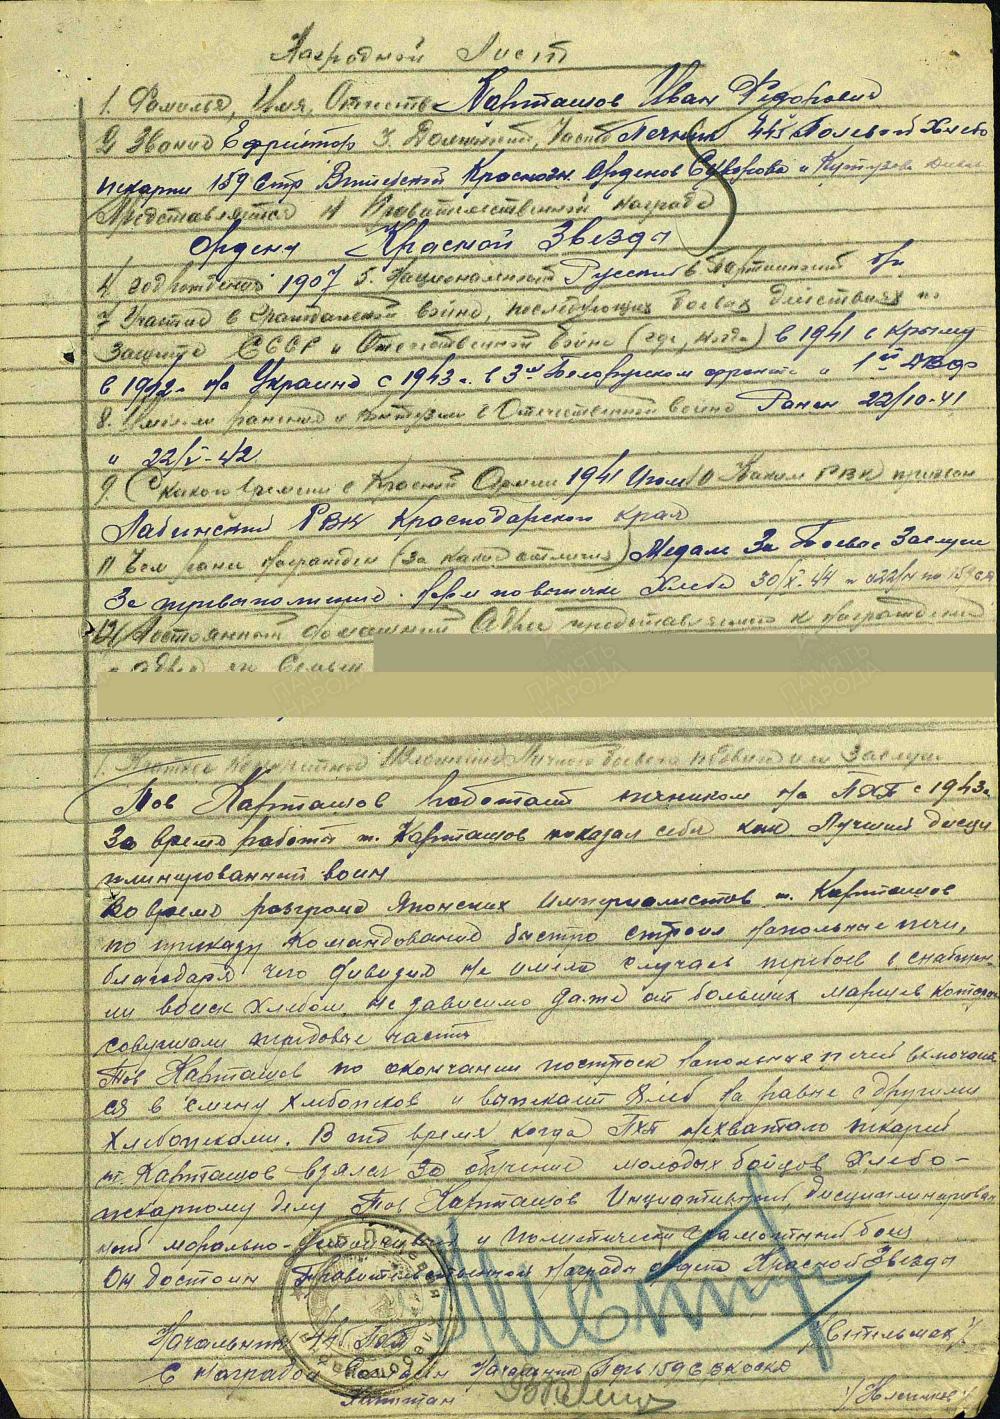 Наградной Лист
1. Фамилья, Имя, Отчество Карташов Иван Федорович
2 Звание Ефрейтор 3. Должность, Часть Печник 445 Полевой Хлебо
пекарни 159 стр Витебской Краснозн. Орденов Суворова и Кутузова
Представляется к Правительственной награде
Ордена Красной Звезды
4 год рождения 1907 5. Национальность Русский 6 Партийность б/п
7 Участие в Гражданской войне, последующих боевых действиях по
защите СССР и Отечественной войне (где, когда) в 1941 г Крыму
в 1942 г на Украине с 1943 г. в 3м Белорусском фронте и 1ом ДВФ
8. Имел ли ранения и контузии в Отечественной войне Ранен 22/10-41
и 22/V-42
9. С какого времени в Красной Армии 1941 Июль 10 Каким РВК призван
Лабинский РВК Краснодарского края
11 Чем ранее награжден (за какие отличия) Медаль За Боевые Заслуги
За по выпечке Хлеба 30/X.44 по 159 сд
12) Постоянный домашний Адрес представляемого к награждению
и адрес его Семьи
1. Краткое конкретное Изложение Личного боевого подвига или Заслуг
Тов Карташов работает печником на ПХП с 1943 г
За время работы т. Карташов показал себя как Лучший дисци
плинированный воин
Во время разгрома Японских Империалистов т. Карташов
по приказу Командования быстро строил напольные печи,
благодаря чего дивизия не имела случаев перебоев в снабжен-
ии войск Хлебом, не зависимо даже от больших маршев которые
совершали передовые части
Тов Карташов по окончании построек напольных печей включает
ся в смену Хлебопеков и выпекает Хлеб на равне с другими
Хлебопеками. В то время когда ПХП не хватало пекарей
т. Карташов взялся за обучение молодых бойцов Хлебо-
пекарному делу Тов Карташов Инициативный, дисциплинирован
ный морально-устойчивый и Политически грамотный боец
Он достоин Правительственной Награды ордена Красной Звезды
Начальник 445 ПХП
С Наградой Согласен Начальник 159 СД
Капитан
ПАМЯТЬ НАРОДА